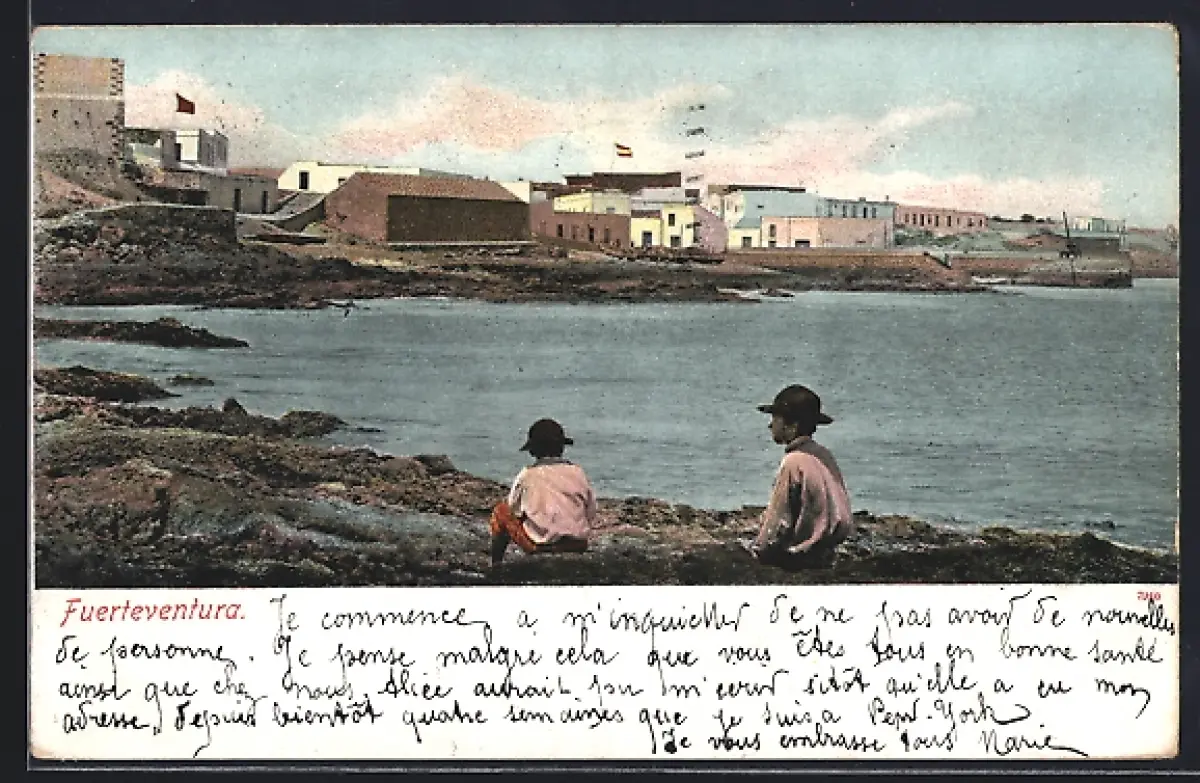 Fuerteventura. Je commence a m'inquietter de ne pas avoir de nouvelles
de personne. Je pense malgré cela que vous êtes tous en bonne santé
ainsi que chez nous. Alice aurait pu m'ecrir sitôt qu'elle a eu mon
adresse, depuis bientôt quatre semaines que je suis a New-York
Je vous embrasse tous Marie